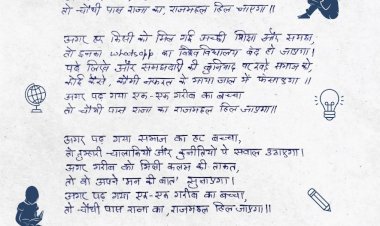 तो चौथी पास राजा का, राजमहल हिल जाएगा॥
अगर हर किसी को मिल गई अच्छी शिक्षा और समझ,
तो इनका whatsapp का विश्व विद्यालय बंद हो जाएगा।
पढ़े लिखे और समझदारी की बुनियाद पर खड़े समाज को,
कोई कैसे, धौंसी नफरत के माया जाल में फंसाएगा।
अगर पढ़ गया एक-एक गरीब का बच्चा
तो चौथी पास राजा का, राजमहल हिल जाएगा॥
अगर पढ़ गया समाज का हर बच्चा,
तो तुम्हारी चालाकियों और कुनीतियों पे सवाल उठाएगा।
अगर गरीब को मिली कलम की ताकत,
तो वो अपने 'मन की बात' सुनाएगा।
अगर पढ़ गया एक-एक गरीब का बच्चा,
तो चौथी पास राजा का, राजमहल हिल जाएगा॥